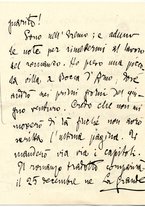 guarito!
Sono nell'Eremo; e aduno
le note per rimettermi al lavoro
del romanzo. Ho preso una piccola
villa a Bocca d'Arno, dove
andrò nei primi giorni del giu-
gno venturo. Credo che non mi
moverò di là finché non avrò
scritta l'ultima pagina. Ti
manderò via via i capitoli.
Il romanzo tradotto comparirà
il 25 decembre ne La Grande